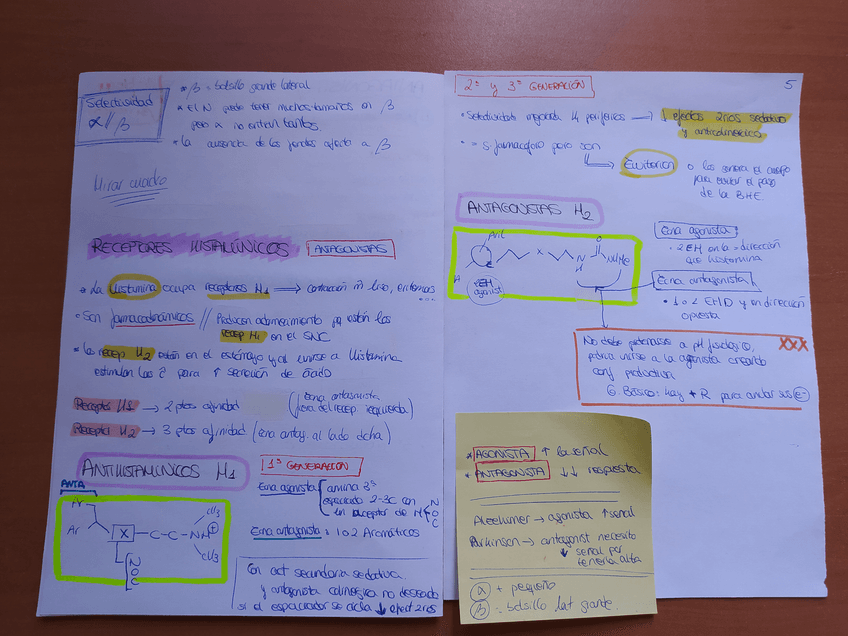 Selectividad
α // β
* β = bolsillo grande lateral
* el N puede tener muchos tamaños en β
pero α no entran tantos.
* la ausencia de los fenoles afecta a β
Mirar cuadro
RECEPTORES HISTAMÍNICOS
ANTAGONISTAS
* La Histamina ocupa receptores H1 → contracción m liso,
• Son farmacodinámicos // Producen adormecimiento pq están los
recep H1 en el SNC
* Los recep H2 están en el estómago y al unirse a Histamina
estimulan las c para ↑ secreción de ácido
Receptor H1 → 2 ptos afinidad (zona antagonista
fuera del recep. requerida)
Receptor H2 → 3 ptos afinidad (zona antag. al lado dcha)
ANTIHISTAMÍNICOS H1
1ª GENERACIÓN
ANTA
Ar
Ar
X
C-C-N
CH3
CH3
N
O
C
Zona agonista
amina 3ª
espaciado 2-3C con
un aceptor de N
O
C
Zona antagonista: 1 o 2 Aromáticos.
Con act secundaria sedativa
y antagonista colinergica no deseada
si el espaciador se cicla ↓ efect 2rios
2ª y 3ª GENERACIÓN
5
• Selectividad mejorada H periféricos → ↓ efectos 2rios sedativo
y anticolinérgico
• = farmacóforo pero son
Zwitterion
o los genera el cuerpo
para evitar el paso
de la BHE.
ANTAGONISTAS H2
Aril
x
N
H
O
NHMe
H
agonist
Zona agonista:
• ZEH en la = dirección
que histamina
Zona antagonista
• 1 o 2 EHD y en dirección
opuesta
No debe protonarse a pH fisiológico, XXX
podría unirse a la agonista creando
conf productiva
G. Básico: hay + R para anclar sus e-
* AGONISTA ↑ la señal
* ANTAGONISTA ↓↓ respuesta
Alzehimer → agonista ↑ señal
Parkinson → antagonist necesito
↓ señal por
tenerla alta
α + pequeño
β = bolsillo lat grande.